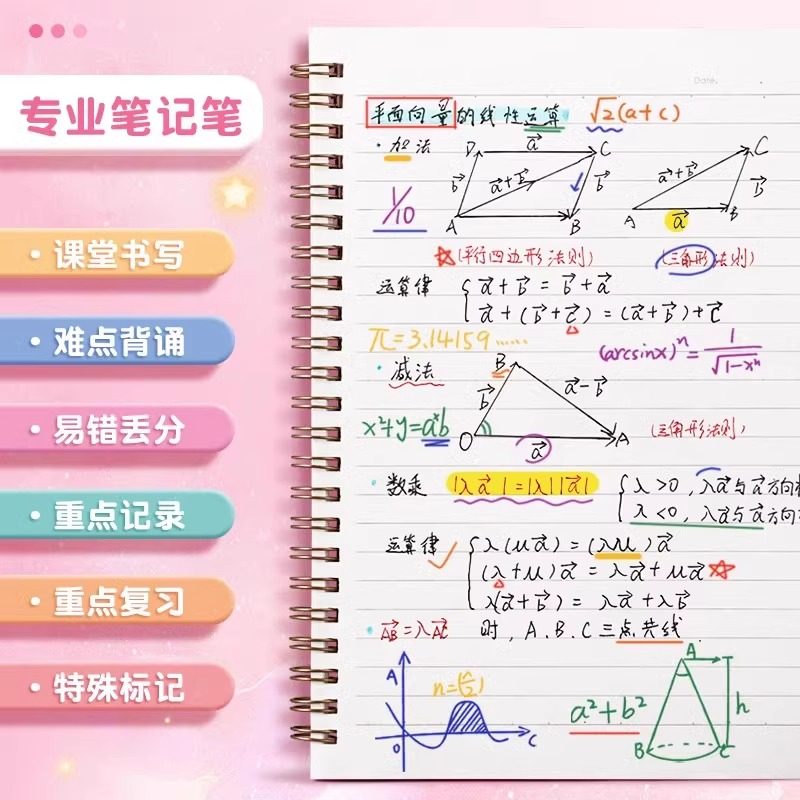 专业笔记笔
·课堂书写
·难点背诵
·易错丢分
·重点记录
·重点复习
·特殊标记
Date:
平面向量的线性运算 √2(a+c)
·加法
D a⃗ C
b⃗ a⃗+b⃗ b⃗
A B
1/10
C
a⃗+b⃗ b⃗
A a⃗ B
☆(平行四边形法则) (三角形法则)
运算律 { a⃗+b⃗=b⃗+a⃗
a⃗+(b⃗+c⃗)=(a⃗+b⃗)+c⃗
π=3.14159…… (arcsinx)ⁿ=1/√1-xⁿ
·减法
B
b⃗ a⃗-b⃗
x²+y=aˣb O a⃗ A (三角形法则)
·数乘 |λa⃗|=|λ||a⃗| { λ>0,λa⃗与a⃗方向
λ<0,λa⃗与a⃗方向
运算律 { λ(μa⃗)=(λμ)a⃗
(λ+μ)a⃗=λa⃗+μa⃗☆
λ(a⃗+b⃗)=λa⃗+λb⃗
·AB⃗=λAC⃗ 时,A.B.C三点共线.
A
0 C
a²+b²
A
h
B C